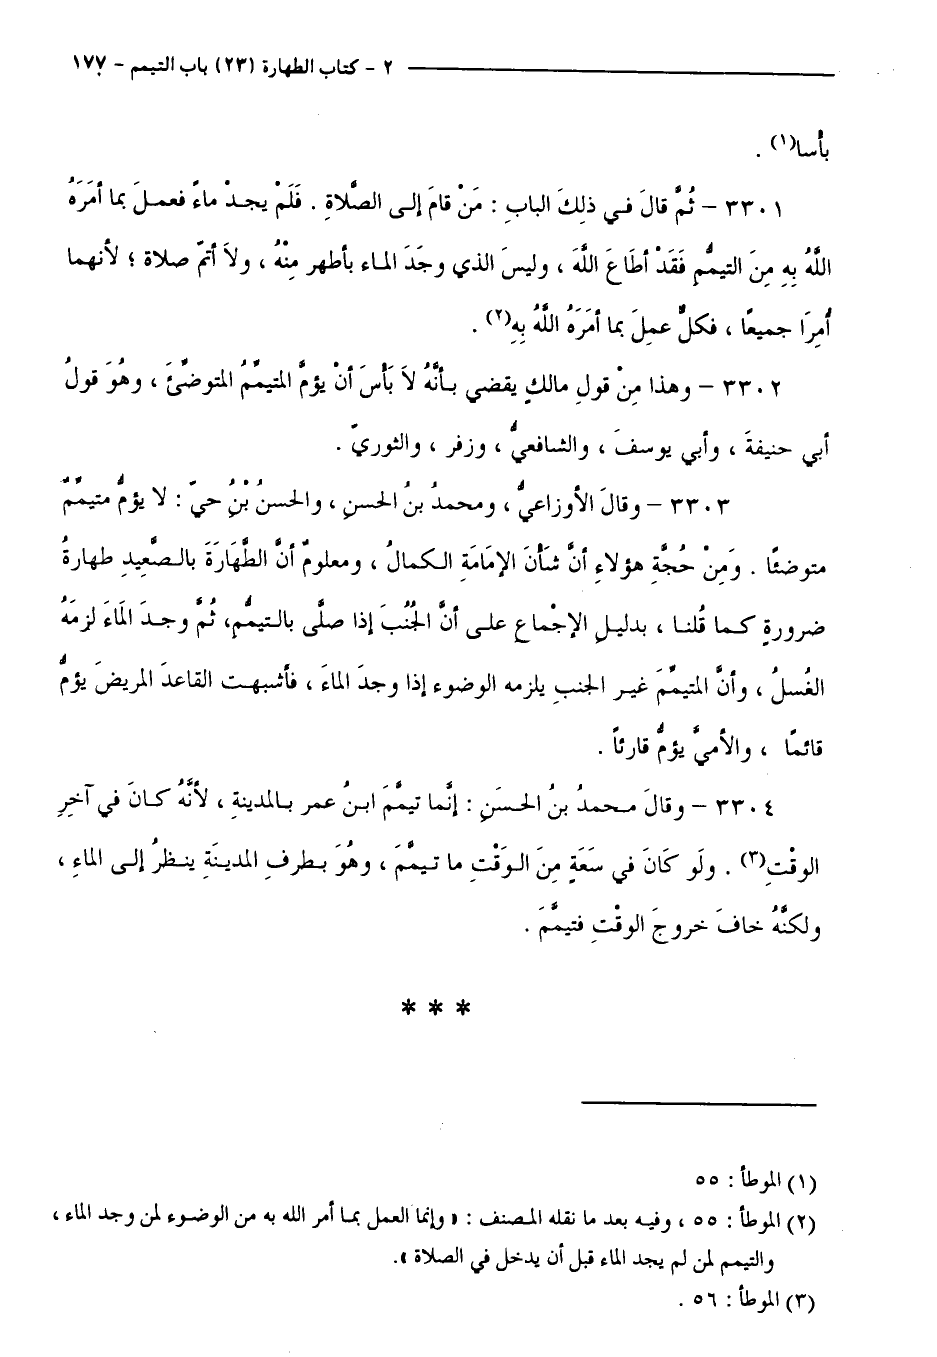 ٢ - كتاب الطهارة (٢٣) باب التيمم - ١٧٧
بأسا(١) .
٣٣٠١ - ثُمَّ قالَ فـي ذلِكَ البابِ : مَنْ قامَ إلـى الصَّلاةِ . فَلَمْ يجـدْ ماءً فعمـلَ بما أمَرَهُ
اللَّهُ بِهِ مِنَ التيمُّمِ فَقَدْ أطَاعَ اللَّهَ ، وليسَ الذي وجَدَ المـاء بأطهر مِنْهُ ، ولاَ أتمّ صلاة ؛ لأنهما
أُمِرَا جميعًا ، فكلٌّ عملَ بما أمَرَهُ اللَّهُ بِهِ(٢) .
٣٣٠٢ - وهذا مِنْ قولِ مالكٍ يقضي بـأنَّهُ لاَ بَأْسَ أنْ يؤمَّ المتيمِّمُ المتوضِّئَ ، وهُوَ قولُ
أبي حنيفةَ ، وأبي يوسفَ ، والشافعيُّ ، وزفر ، والثوريّ .
٣٣٠٣ - وقالَ الأوزاعيُّ ، ومحمدُ بنُ الحسنِ ، والحسنُ بْنُ حيّ : لا يؤمُّ متيمِّمٌ
متوضئًا . وَمِنْ حُجَّةِ هؤلاءِ أنَّ شَأْنَ الإمَامَةِ الكمالُ ، ومعلومٌ أنَّ الطَّهَارَةَ بالـصَّعِيدِ طهارةُ
ضرورةٍ كـما قُلنـا ، بدليلِ الإجْماعِ علـى أنَّ الجُنُبَ إذا صلَّى بالـتيمُّمِ، ثُمَّ وجـدَ المَاءَ لزمَهُ
الغُسلُ ، وأنَّ المتيمِّمَ غيـر الجنبِ يلزمه الوضوء إذا وجدَ الماءَ ، فأشبهـت القاعدَ المريضَ يؤمُّ
قائمًا ، والأميَّ يؤمُّ قارئاً .
٣٣٠٤ - وقالَ محمدُ بنُ الحسَنِ : إنَّما تيمَّمَ ابـنُ عمر بـالمدينةِ ، لأنَّهُ كـانَ في آخرِ
الوقْتِ(٣) . ولَو كَانَ في سَعَةٍ مِنَ الـوَقْتِ ما تيـمَّمَ ، وهُوَ بـطرفِ المدينَةِ ينـظرُ إلـى الماءِ ،
ولكنَّهُ خافَ خروجَ الوقْتِ فتيمَّمَ .
* * *
(١) الموطأ : ٥٥
(٢) الموطأ : ٥٥ ، وفيه بعد ما نقله المصنف : « وإنما العمل بما أمر الله به من الوضوء لمن وجد الماء ،
والتيمم لمن لم يجد الماء قبل أن يدخل في الصلاة ».
(٣) الموطأ : ٥٦ .